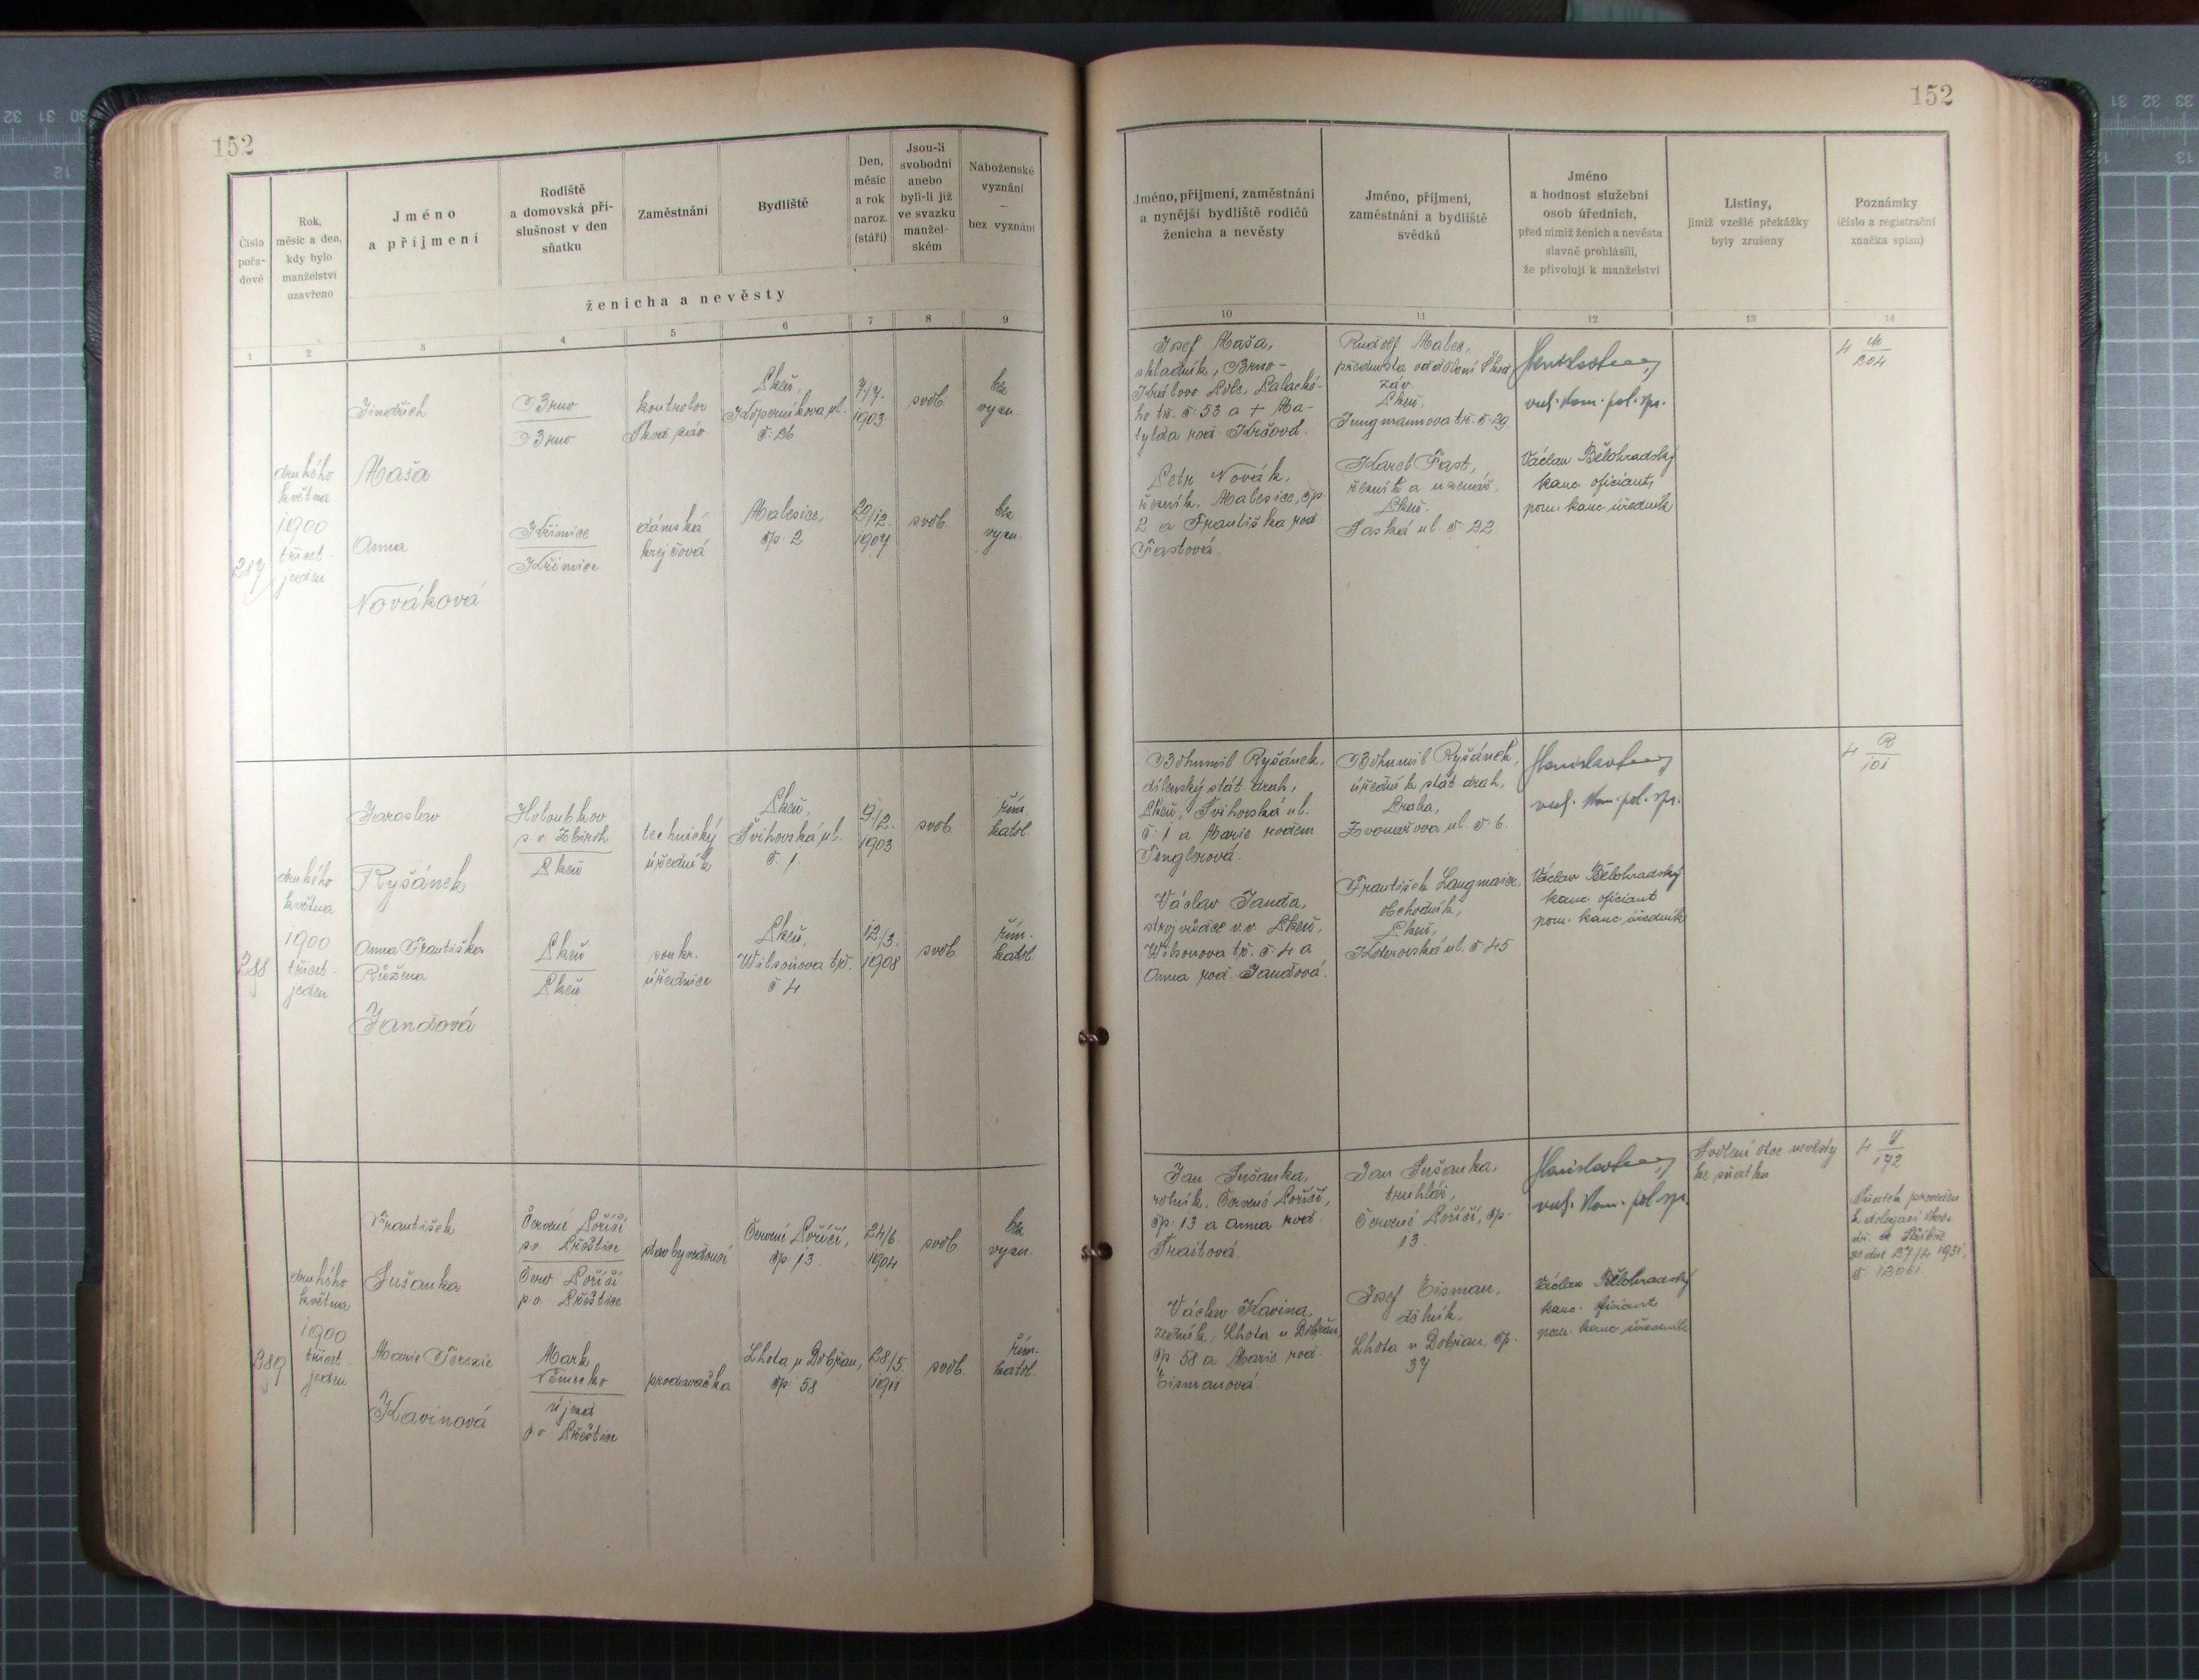 152
Číslo pořa-dové
Rok, měsíc a den, kdy bylo manželství uzavřeno
Jméno a příjmení
Rodiště a domovská pří-slušnost v den sňatku
Zaměstnání
Bydliště
Den, měsíc a rok naroz. (stáří)
Jsou-li svobodni anebo byli-li již ve svazku manžel-ském
Náboženské vyznání — bez vyznání
ženicha a nevěsty
1 2 3 4 5 6 7 8 9
287
druhého
května
1900
třicet-
jeden
Jindřich
Maša
Brno
Brno
kontrolor
Škod. záv.
Plzeň,
Koperníkova ul.
č. 26
7/7.
1903
svob.
bez
vyzn.
Anna
Nováková
Křimice
Křimice
dámská
krejčová
Malesice,
čp. 2
29/12.
1907
svob.
bez
vyzn.
288
druhého
května
1900
třicet-
jeden
Jaroslav
Ryšánek
Holoubkov
p. o. Zbiroh
Plzeň
technický
úředník
Plzeň,
Švihovská ul.
č. 1.
9./2.
1903
svob.
řím.
katol.
Anna Františka
Růžena
Jandová
Plzeň
Plzeň
soukr.
úřednice
Plzeň,
Wilsonova tř.
č 4
12/3.
1908
svob.
řím.
katol.
289
druhého
května
1900
třicet-
jeden
František
Sušanka
Červené Poříčí,
p.o. Přeštice
Červ. Poříčí
p.o. Přeštice
stavbyvedoucí
Červené Poříčí,
čp. 13
24/6
1904
svob.
bez
vyzn.
Marie Terezie
Kavinová
Mark
Německo
Újezd
p.o. Přeštice
prodavačka
Lhota u Dobřan,
čp. 58
28/5.
1911
svob.
řím.
katol.
152
Jméno, příjmení, zaměstnání a nynější bydliště rodičů ženicha a nevěsty
Jméno, příjmení, zaměstnání a bydliště svědků
Jméno a hodnost služební osob úředních, před nimiž ženich a nevěsta slavně prohlásili, že přivolují k manželství
Listiny, jimiž vzešlé překážky byly zrušeny
Poznámky (číslo a registrační značka spisu)
10 11 12 13 14
Josef Maša,
skladník, Brno-
Královo Pole, Palacké-
ho tř. č. 53 a + Ma-
tylda roz.
Petr Novák,
řezník, Malesice, čp.
2 a Františka roz.
Fastová.
Rudolf Malec,
přednosta oddělení Škod.
záv.
Plzeň,
Jungmannova tř. č. 29.
Karel Fast,
řezník a uzenář,
Plzeň,
Saská ul. č. 22.
pol. spr.
Václav Bělohradský
kanc. oficiant,
pom. kanc. úředník
4 M
204
Bohumil Ryšánek,
dílenský stát. drah,
Plzeň, Švihovská ul.
č. 1 a Marie rozem
Tenglerová.
Václav Janda,
strojvůdce v.v. Plzeň,
Wilsonova tř. č. 4 a
Anna roz. Jandová.
Bohumil Ryšánek,
úředník stát. drah,
Praha,
Zvonařova ul. č. 6.
František Langmaier,
obchodník,
Plzeň,
Koterovská ul. č 45
pol. spr.
Václav Bělohradský
kanc. oficiant
pom. kanc. úředník
4 R
101
Jan Sušanka,
rolník, Červené Poříčí,
čp. 13 a Anna roz.
Traitová.
Václav Kavina,
zedník, Lhota u Dobřan,
čp. 58 a Marie roz.
Eismanová
Jan Sušanka,
truhlář,
Červené Poříčí, čp.
13.
Josef Eisman,
dělník,
Lhota u Dobřan, čp.
37
pol. spr.
Václav Bělohradský
kanc. oficiant
pom. kanc. úředník
Svolení otce nevěsty
ke sňatku
4 S
172
Sňatek proveden
z delegací okres.
úř. v Stříbře
ze dne 27/4 1931,
č. 12061